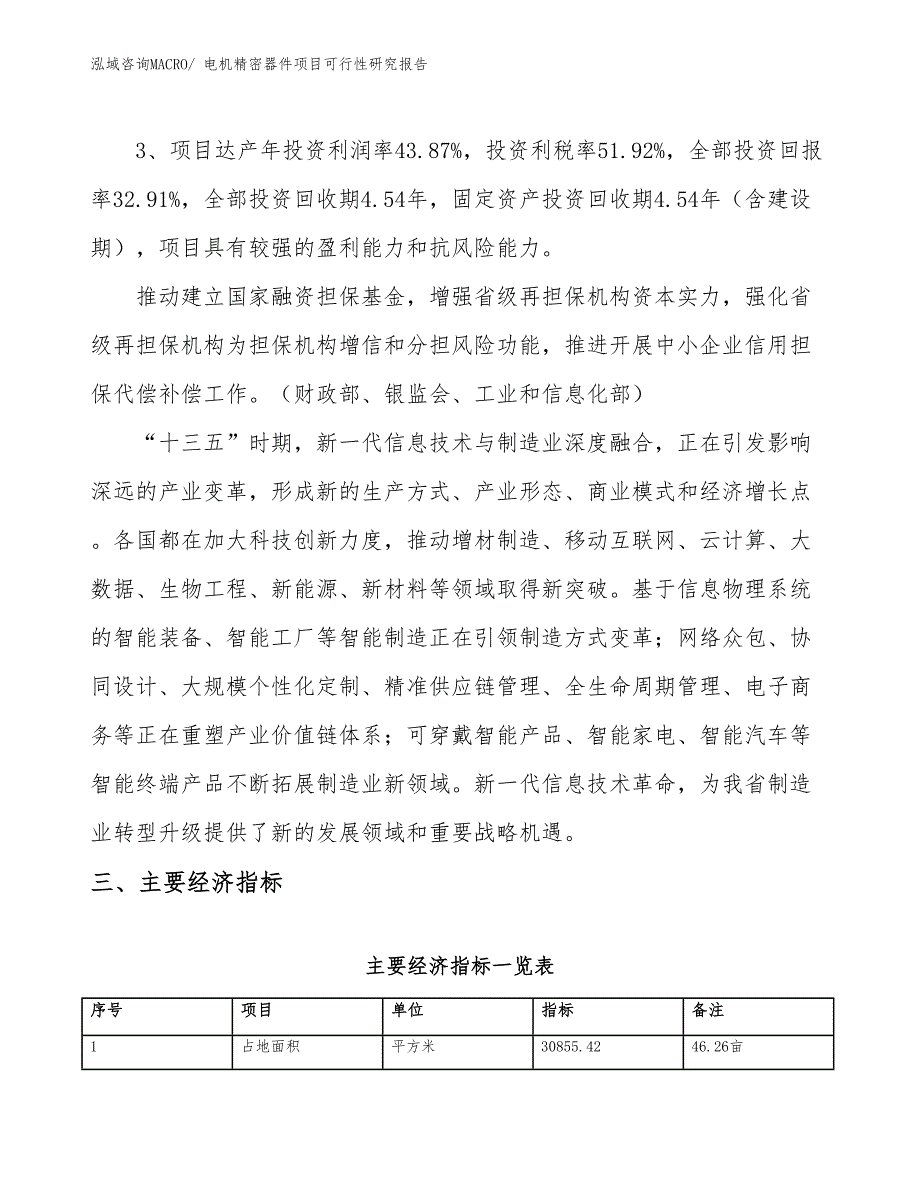 泓域咨询MACRO/ 电机精密器件项目可行性研究报告
3、项目达产年投资利润率43.87%，投资利税率51.92%，全部投资回报
率32.91%，全部投资回收期4.54年，固定资产投资回收期4.54年（含建设
期），项目具有较强的盈利能力和抗风险能力。
推动建立国家融资担保基金，增强省级再担保机构资本实力，强化省
级再担保机构为担保机构增信和分担风险功能，推进开展中小企业信用担
保代偿补偿工作。（财政部、银监会、工业和信息化部）
“十三五”时期，新一代信息技术与制造业深度融合，正在引发影响
深远的产业变革，形成新的生产方式、产业形态、商业模式和经济增长点
。各国都在加大科技创新力度，推动增材制造、移动互联网、云计算、大
数据、生物工程、新能源、新材料等领域取得新突破。基于信息物理系统
的智能装备、智能工厂等智能制造正在引领制造方式变革；网络众包、协
同设计、大规模个性化定制、精准供应链管理、全生命周期管理、电子商
务等正在重塑产业价值链体系；可穿戴智能产品、智能家电、智能汽车等
智能终端产品不断拓展制造业新领域。新一代信息技术革命，为我省制造
业转型升级提供了新的发展领域和重要战略机遇。
三、主要经济指标
主要经济指标一览表
序号 项目 单位 指标 备注
1 占地面积 平方米 30855.42 46.26亩